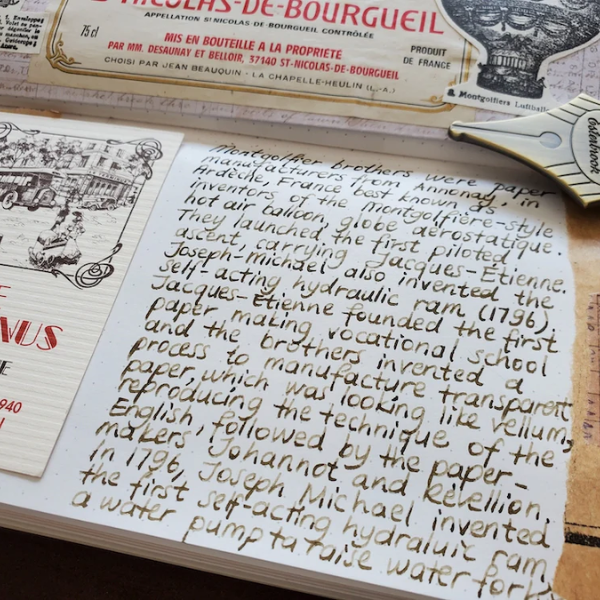 NICOLAS-DE-BOURGUEIL
APPELLATION ST NICOLAS DE BOURGUEIL CONTRÔLÉE
75 cl
MIS EN BOUTEILLE A LA PROPRIETE
PAR MM. DESAUNAY ET BELLOIR, 37140 ST-NICOLAS-DE-BOURGUEIL
PRODUIT
DE FRANCE
CHOISI PAR JEAN BEAUQUIN - LA CHAPELLE-HEULIN (L.-A.)
Montgolfiers
NUS
940
Montgolfier brothers were paper
manufacturers from Annonay, in
Ardèche, France best known as
inventors of the Montgolfière-style
hot air baloon, globe aérostatique.
They launched the first piloted
ascent, carrying Jacques-Étienne.
Joseph-Michael also invented the
self-acting hydraulic ram (1796),
Jacques-Étienne founded the first
paper making vocational school
and the brothers invented a
process to manufacture transparent
paper, which was looking like vellum,
reproducing the technique of the
English, followed by the paper-
makers Johannot and Réveillion,
In 1796, Joseph Michael invented
the first self-acting hydraluic ram,
a water pump to raise water for